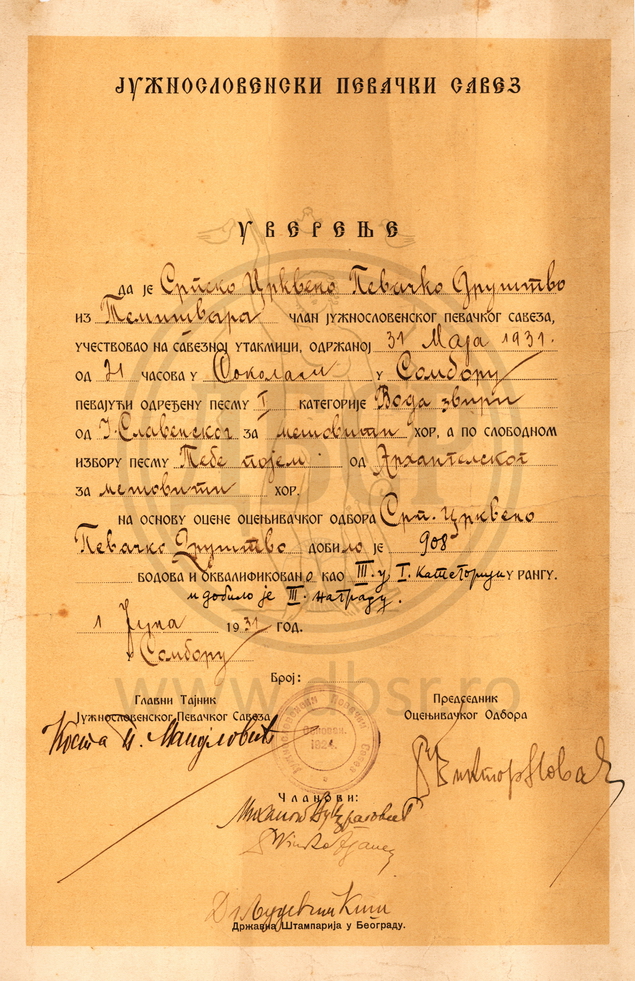 ЈУЖНОСЛОВЕНСКИ ПЕВАЧКИ САВЕЗ
УВЕРЕЊЕ
ДА ЈЕ Српско Црквено Певачко Друштво
ИЗ Темишвара ЧЛАН ЈУЖНОСЛОВЕНСКОГ ПЕВАЧКОГ САВЕЗА,
УЧЕСТВОВАО НА САВЕЗНОЈ УТАКМИЦИ, ОДРЖАНОЈ 31 Маја 1931.
ОД 21 ЧАСОВА У У Сомбору
ПЕВАЈУЋИ ОДРЕЂЕНУ ПЕСМУ I КАТЕГОРИЈЕ Вода звири
ОД Ј. Славенског ЗА мешовити ХОР, А ПО СЛОБОДНОМ
ИЗБОРУ ПЕСМУ Тебе појем ОД Архангелског
ЗА мешовити ХОР.
НА ОСНОВУ ОЦЕНЕ ОЦЕЊИВАЧКОГ ОДБОРА Срп. Црквено
Певачко Друштво ДОБИЛО ЈЕ 908
БОДОВА И ОКВАЛИФИКОВАНО КАО III. у I. Категорији У РАНГУ.
и добило је III. награду.
1 Јуна 1931 ГОД.
у Сомбору
БРОЈ:
www.dbsr.ro
Главни Тајник
Јужнословенског Певачког Савеза
Председник
Оцењивачког Одбора
Коста П. Манојловић
1924.
Виктор Новак
Чланови:
Државна Штампарија у Београду.